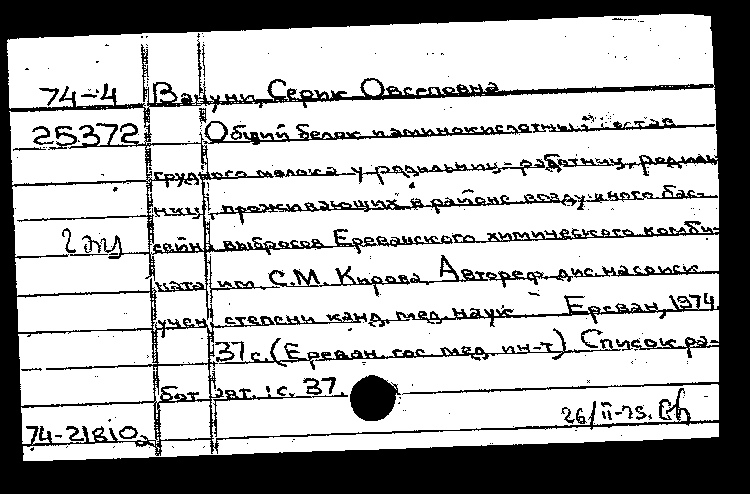 74-4 Вануни, Серик Овсеповна
25372 Общий белок и аминокислотный состав
грудного молока у родильниц-работниц, родиль-
ниц, проживающих в районе воздушного бас-
2 экз сейна выбросов Ереванского химического комби-
ната им. С.М. Кирова. Автореф. дис. на соиск.
учен. степени канд. мед. наук. Ереван, 1974.
37 с. (Ереван. гос. мед. ин-т). Список ра-
бот авт.: с. 37.
26/II-75.
74-21810